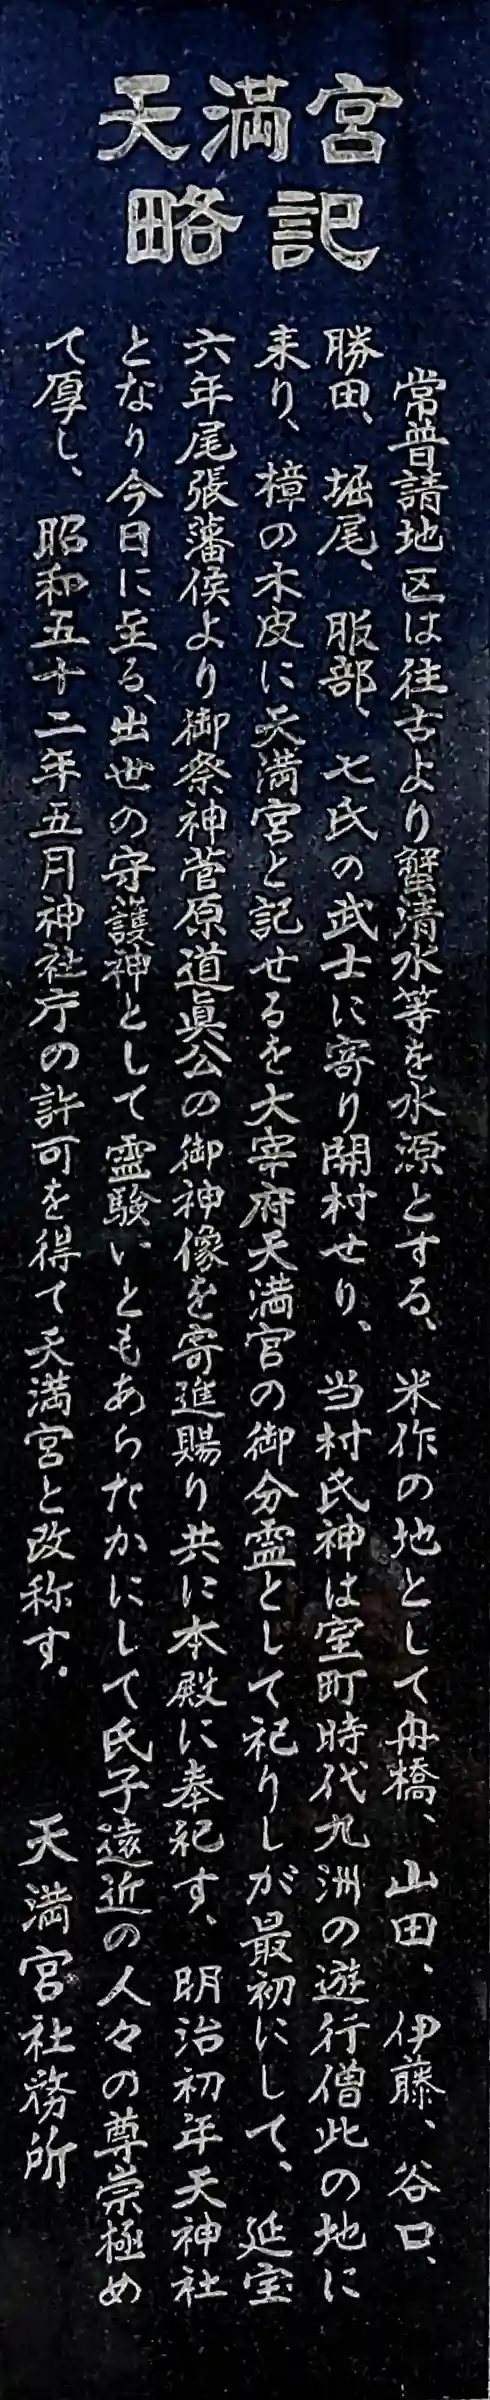 天満宮
略記
常普請地区は往古より蟹清水等を水源とする、米作の地として舟橋、山田、伊藤、谷口、
勝田、堀尾、服部、七氏の武士に寄り開村せり、当村氏神は室町時代九洲の遊行僧此の地に
来り、樟の木皮に天満宮と記せるを大宰府天満宮の御分霊として祀りしが最初にして、延宝
六年尾張藩侯より御祭神菅原道眞公の御神像を寄進賜り共に本殿に奉祀す、明治初年天神社
となり今日に至る、出世の守護神として霊験いともあらたかにして氏子遠近の人々の尊崇極め
て厚し、昭和五十二年五月神社庁の許可を得て天満宮と改称す。
天満宮社務所